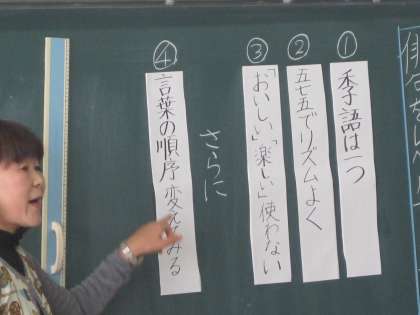 ①
季語は一つ
②
五七五でリズムよく
③
「おいしい」「楽しい」使わない
さらに
④
言葉の順序変えてみる